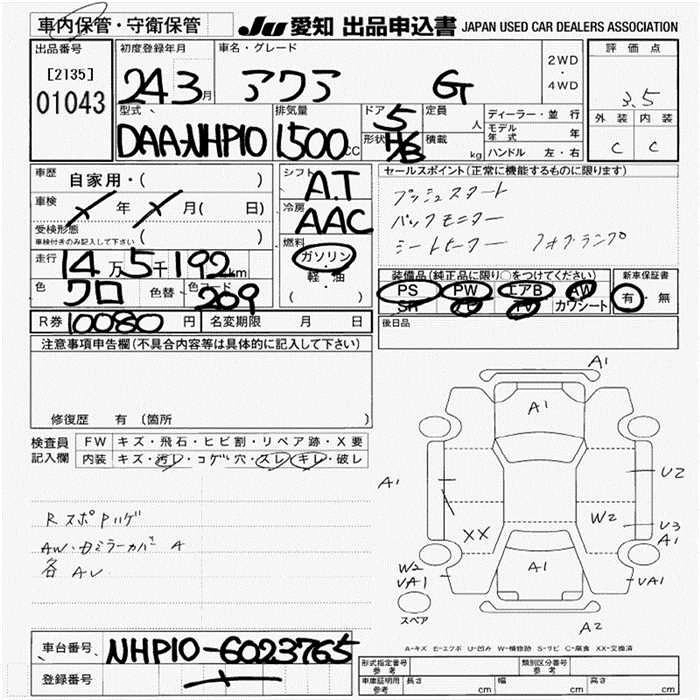 車内保管・守衛保管
JU 愛知 出品申込書 JAPAN USED CAR DEALERS ASSOCIATION
出品番号
[2135]
01043
初度登録年月
24 3月
車名・グレード
アクア G
2WD
・
4WD
評価点
3.5
外装 内装
C C
型式
DAA-NHP10
排気量
1500cc
ドア
5
形状
H/B
定員
人
積載
kg
ディーラー・並行
モデル年式 年
ハンドル 左・右
車歴
自家用・( )
車検
年 月( 日)
受検形態
車検付きのみ記入して下さい ( )
シフト
A.T
冷房
AAC
燃料
ガソリン
・
軽・油
( )
セールスポイント(正常に機能するものに限ります)
プッシュスタート
バックモニター
シートヒーター フォグランプ
走行
14万5千192km
色
クロ
色替
色コード
209
装備品(純正品に限り○をつけてください)
PS PW エアB AW
SR TV カワシート
新車保証書
有・無
後日品
R券 10080円
名変期限 月 日
注意事項申告欄(不具合内容等は具体的に記入して下さい)
修復歴 有(箇所 )
検査員記入欄
FW キズ・飛石・ヒビ割・リペア跡・X要
内装 キズ・汚レ・コゲ穴・スレ・キレ・破レ
RスポPハゲ
AW・ドミラーカバーA
各AU
A1
A1
A1
U2
W2
U3
A1
XX
W2
UA1
A1
UA1
A2
スペア
A-キズ E-エクボ U-凹み W-補修跡 S-サビ C-腐食 XX-交換済
車台番号
NHP10-6023765
登録番号
形式指定番号
参考
類別区分番号
参考
車庫証明用
参考
長さ cm 幅 cm 高さ cm